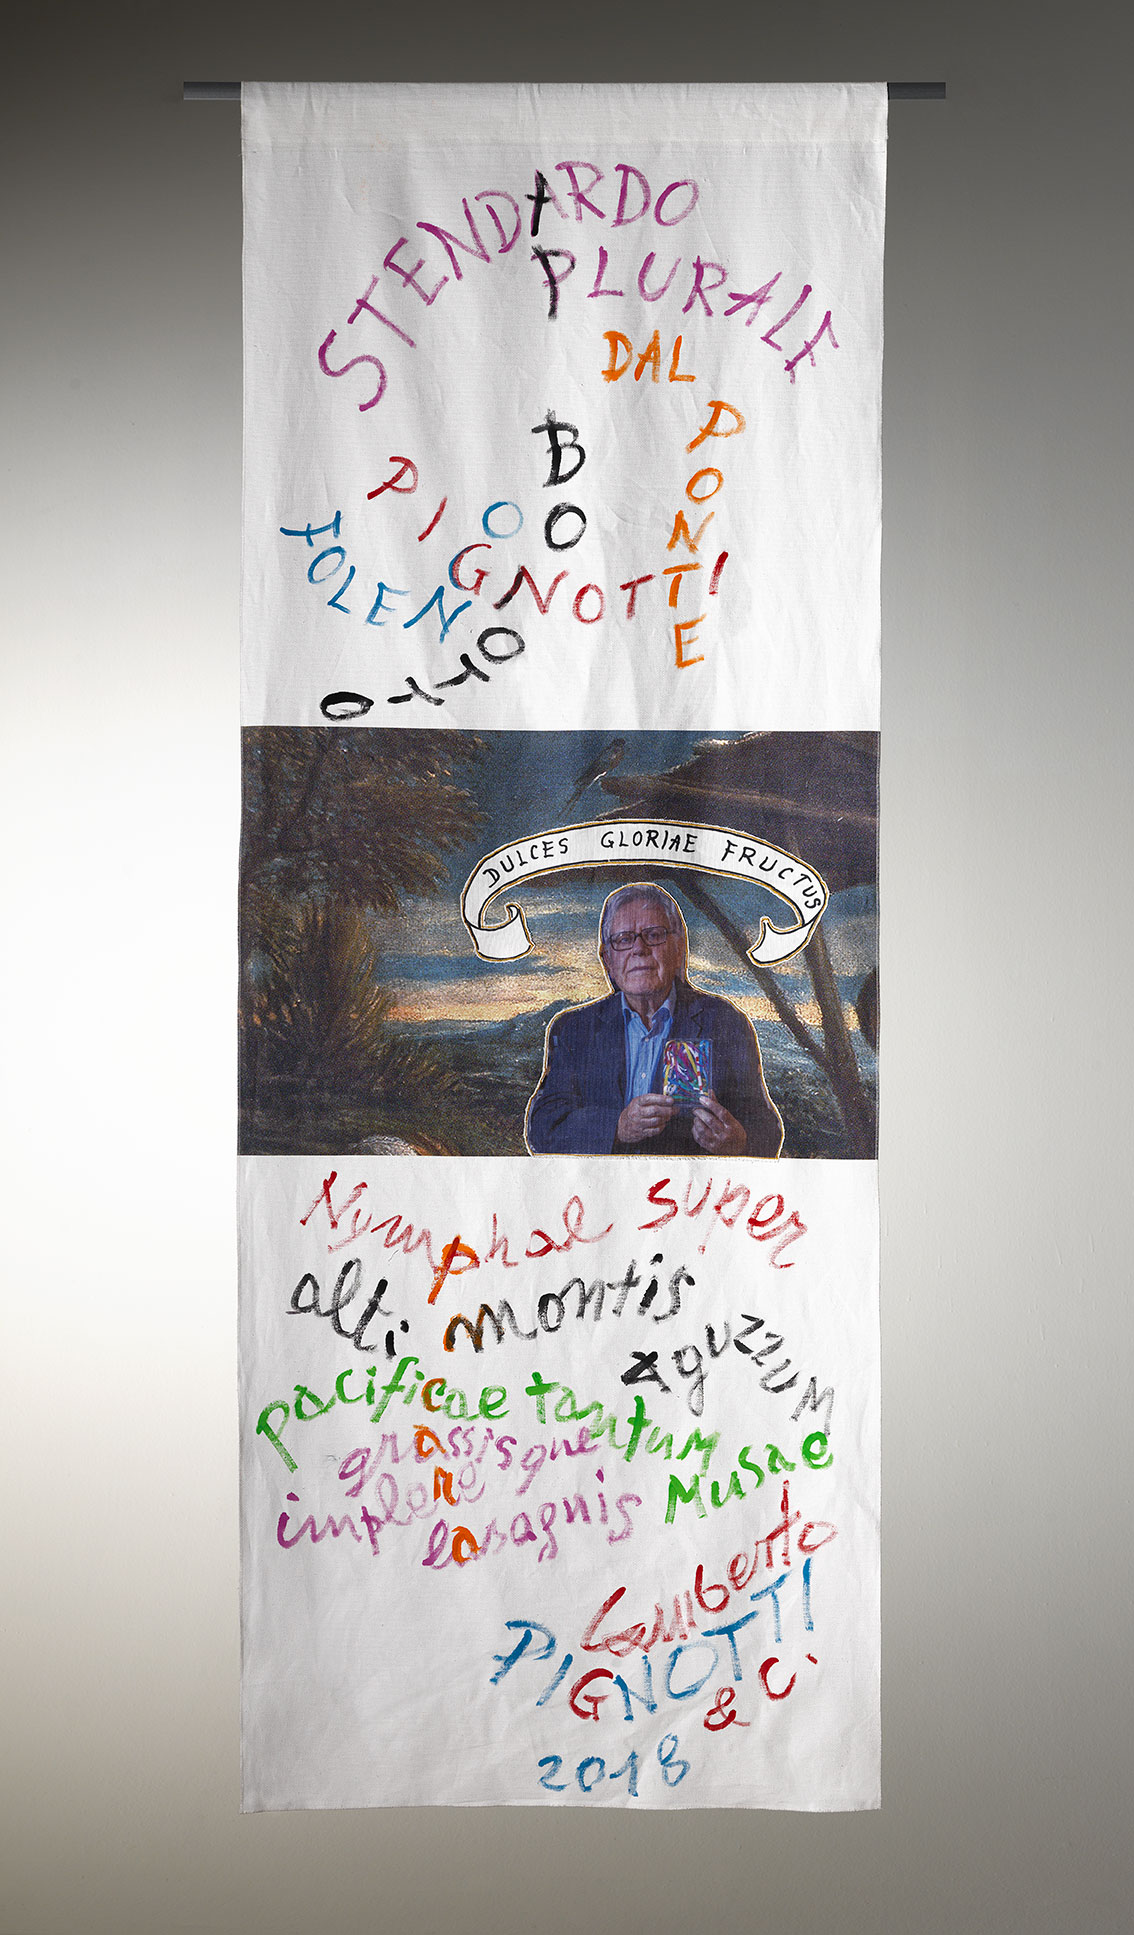 STENDARDO
PLURALE
DAL
PONTE
A P
BONOTTO
PIGNOTTI
FOLENGO
DULCES GLORIAE FRUCTUS
Nymphae super
alti montis
aguzzum
pacificae tantum
Musae
grassisque
implere
lasagnis
Lamberto
PIGNOTTI
& C.
2018